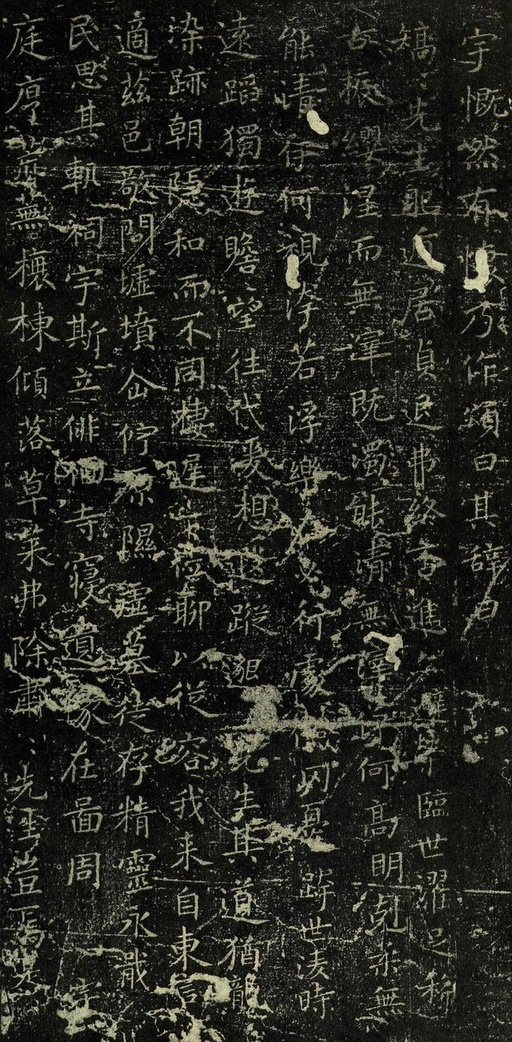 宇慨然有懷乃作頌曰其辭曰
矯〻先生肥遁居貞退弗終否進亦避榮臨世濯足稀
古振纓涅而無滓既濁能清無滓伊何高明克柔無
能清伊何視洿若浮樂在必行處儉罔憂跨世淩時
遠蹈獨遊瞻〻望往代爰想遐蹤邈〻先生其道猶龍
染跡朝隱和而不同棲遲下位聊以從容我來自東言
適茲邑敬問墟墳企佇原隰墟墓徒存精靈永戢
民思其軌祠宇斯立俳佪寺寑遺像在啚周 宇
庭序荒蕪榱棟傾落草萊弗除肅〻先生豈焉是